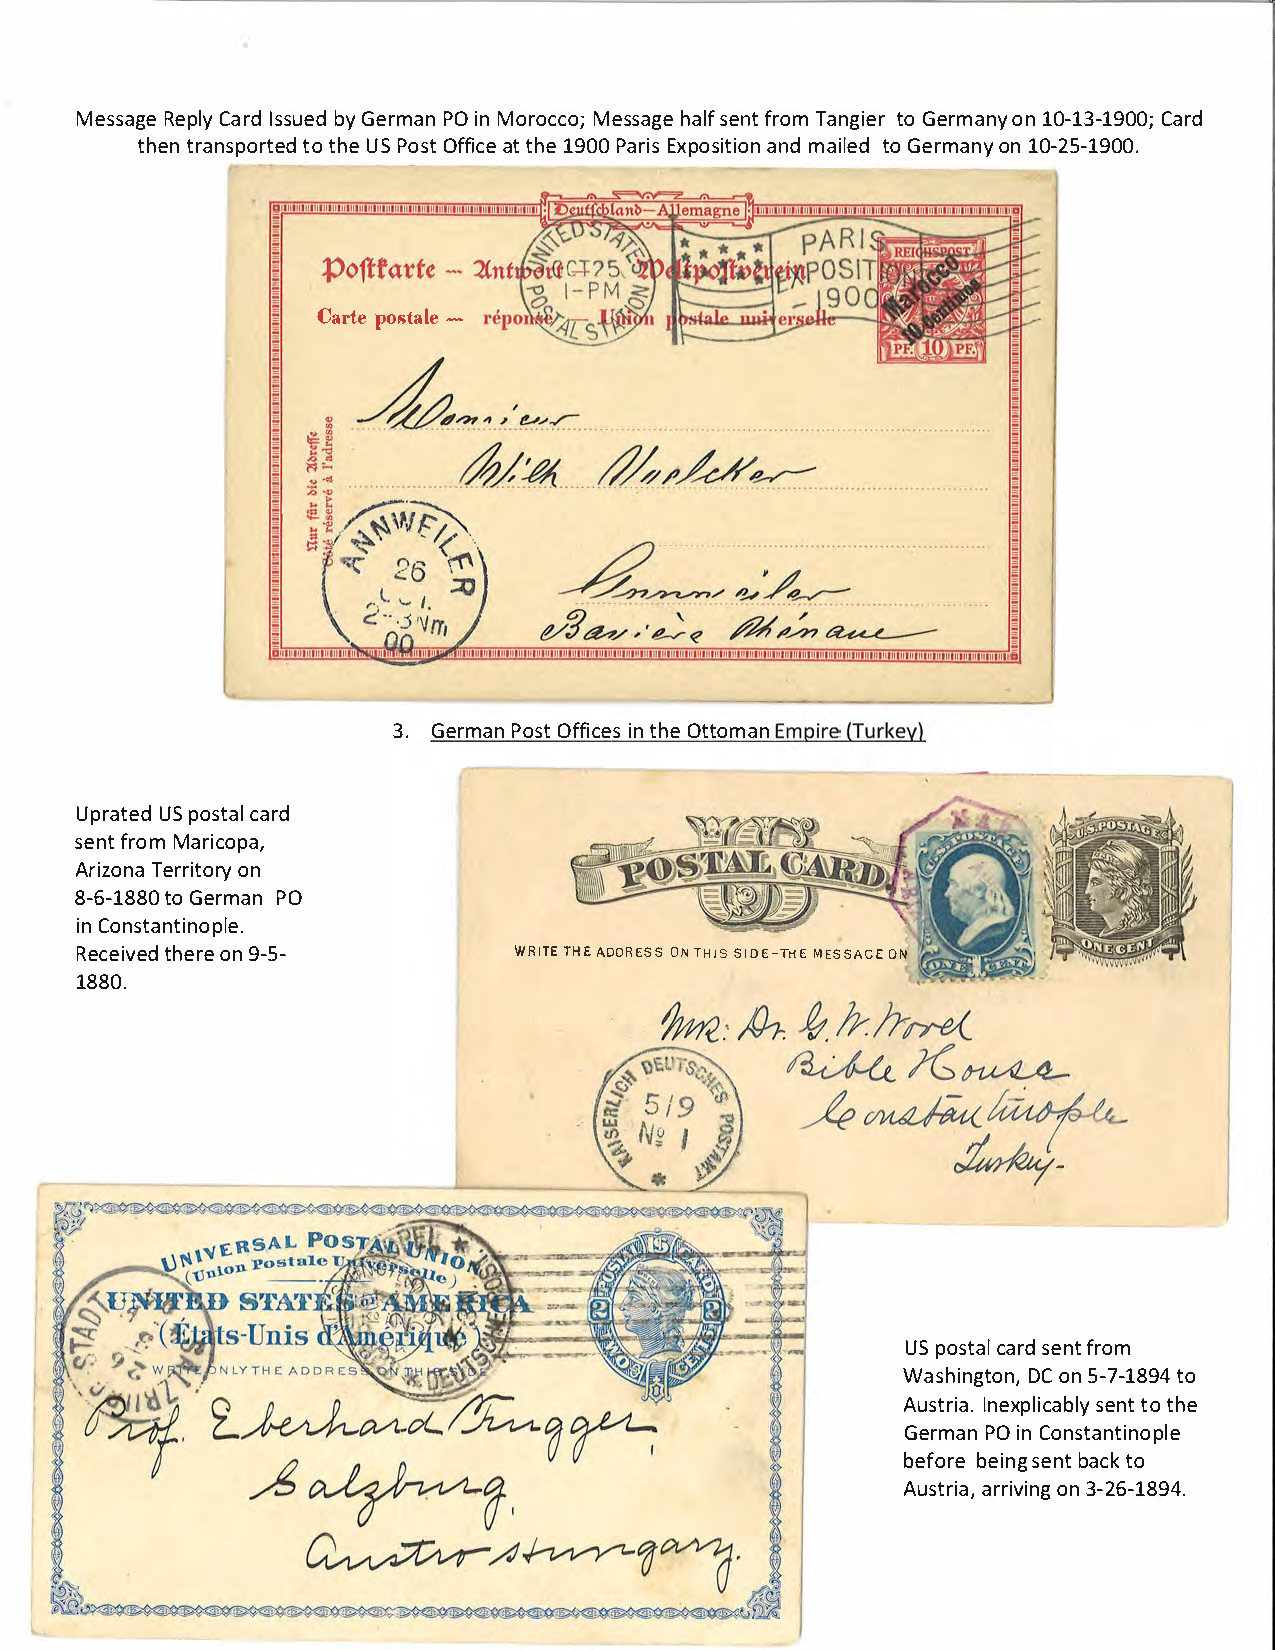 Message Reply Card Issued by German PO in Morocco; Message half sent from Tangier to Germany on 10-13-1900; Card
then transported to the US Post Office at the 1900 Paris Exposition and mailed to Germany on 10-25-1900.
Deutschland—Allemagne
UNITED STATES
POSTAL STATION
OCT 25
1-PM
PARIS
EXPOSITION
- 1900
Postkarte — Antwort — Weltpostverein
Carte postale — réponse — Union postale universelle
REICHSPOST
Marocco
10 Centimos
PF. 10 PF.
Nur für die Adresse
Côté réservé à l'adresse
Monsieur
Wilh Voelcker
Annweiler
Bavière Rhénane
ANNWEILER
26
OCT.
2-3 Nm
00
3. German Post Offices in the Ottoman Empire (Turkey)
Uprated US postal card
sent from Maricopa,
Arizona Territory on
8-6-1880 to German PO
in Constantinople.
Received there on 9-5-
1880.
POSTAL CARD
U.S. POSTAGE
ONE CENT
U.S. POSTAGE
ONE CENT
WRITE THE ADDRESS ON THIS SIDE-THE MESSAGE ON
Mr: Dr. G. W. Wood
Bible House
Constantinople
Turkey-
KAISERLICH DEUTSCHES POSTAMT
5/9
No 1
UNIVERSAL POSTAL UNION
(Union Postale Universelle)
UNITED STATES OF AMERICA
(États-Unis d'Amérique)
WRITE ONLY THE ADDRESS ON THIS SIDE
POSTAL CARD
U S
2 2
TWO CENTS
DEUTSCHE POST
SALZBURG STADT
Prof. Eberhard Fugger,
Salzburg,
Austro-Hungary.
US postal card sent from
Washington, DC on 5-7-1894 to
Austria. Inexplicably sent to the
German PO in Constantinople
before being sent back to
Austria, arriving on 3-26-1894.